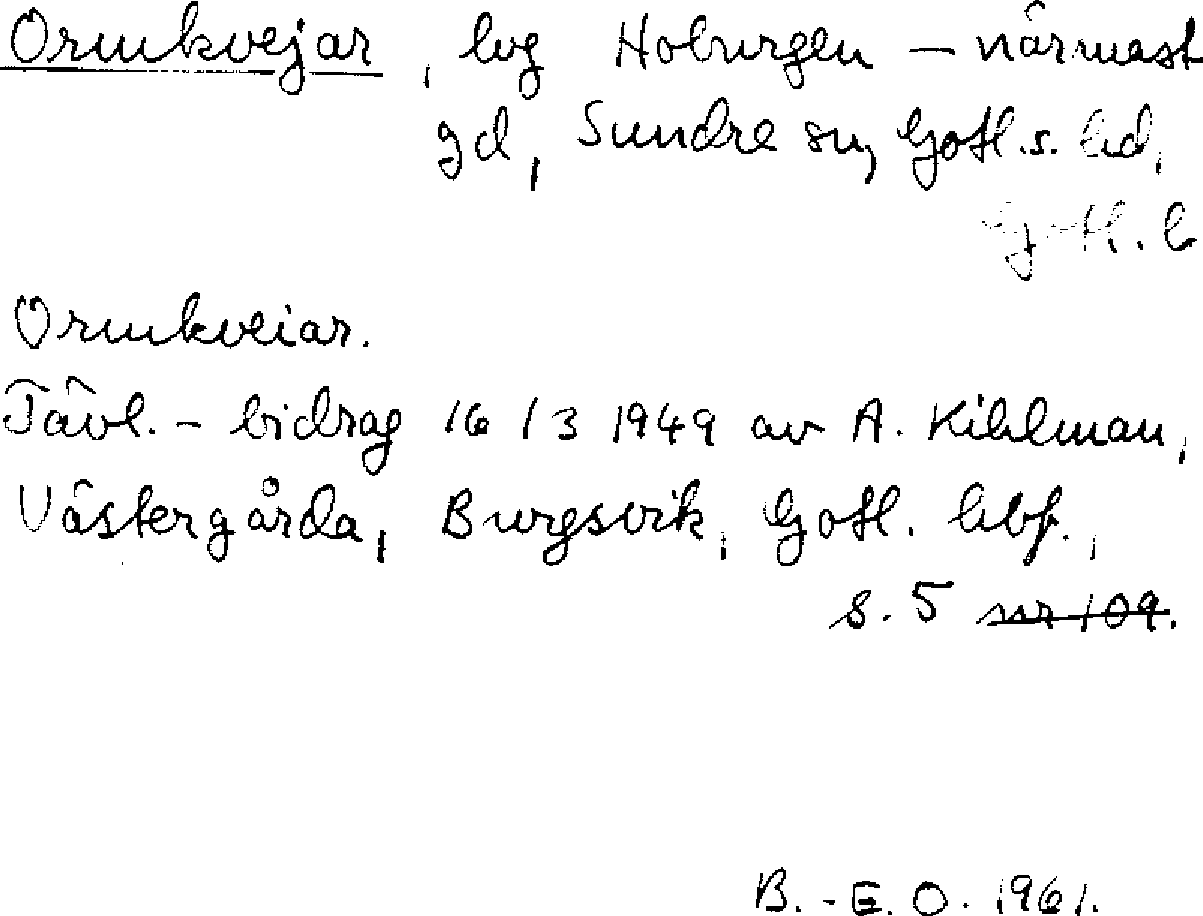 Ormkvejar, lvg Hoburgen – närmast
gd, Sundre sn, Gotl.s. hd,
Gotl. l
Ormkveiar.
Tävl. - bidrag 16/3 1949 av A. Kihlman,
Västergårda, Burgsvik, Gotl. lbf.,
s. 5 nr 109.
B.-E.O. 1961.